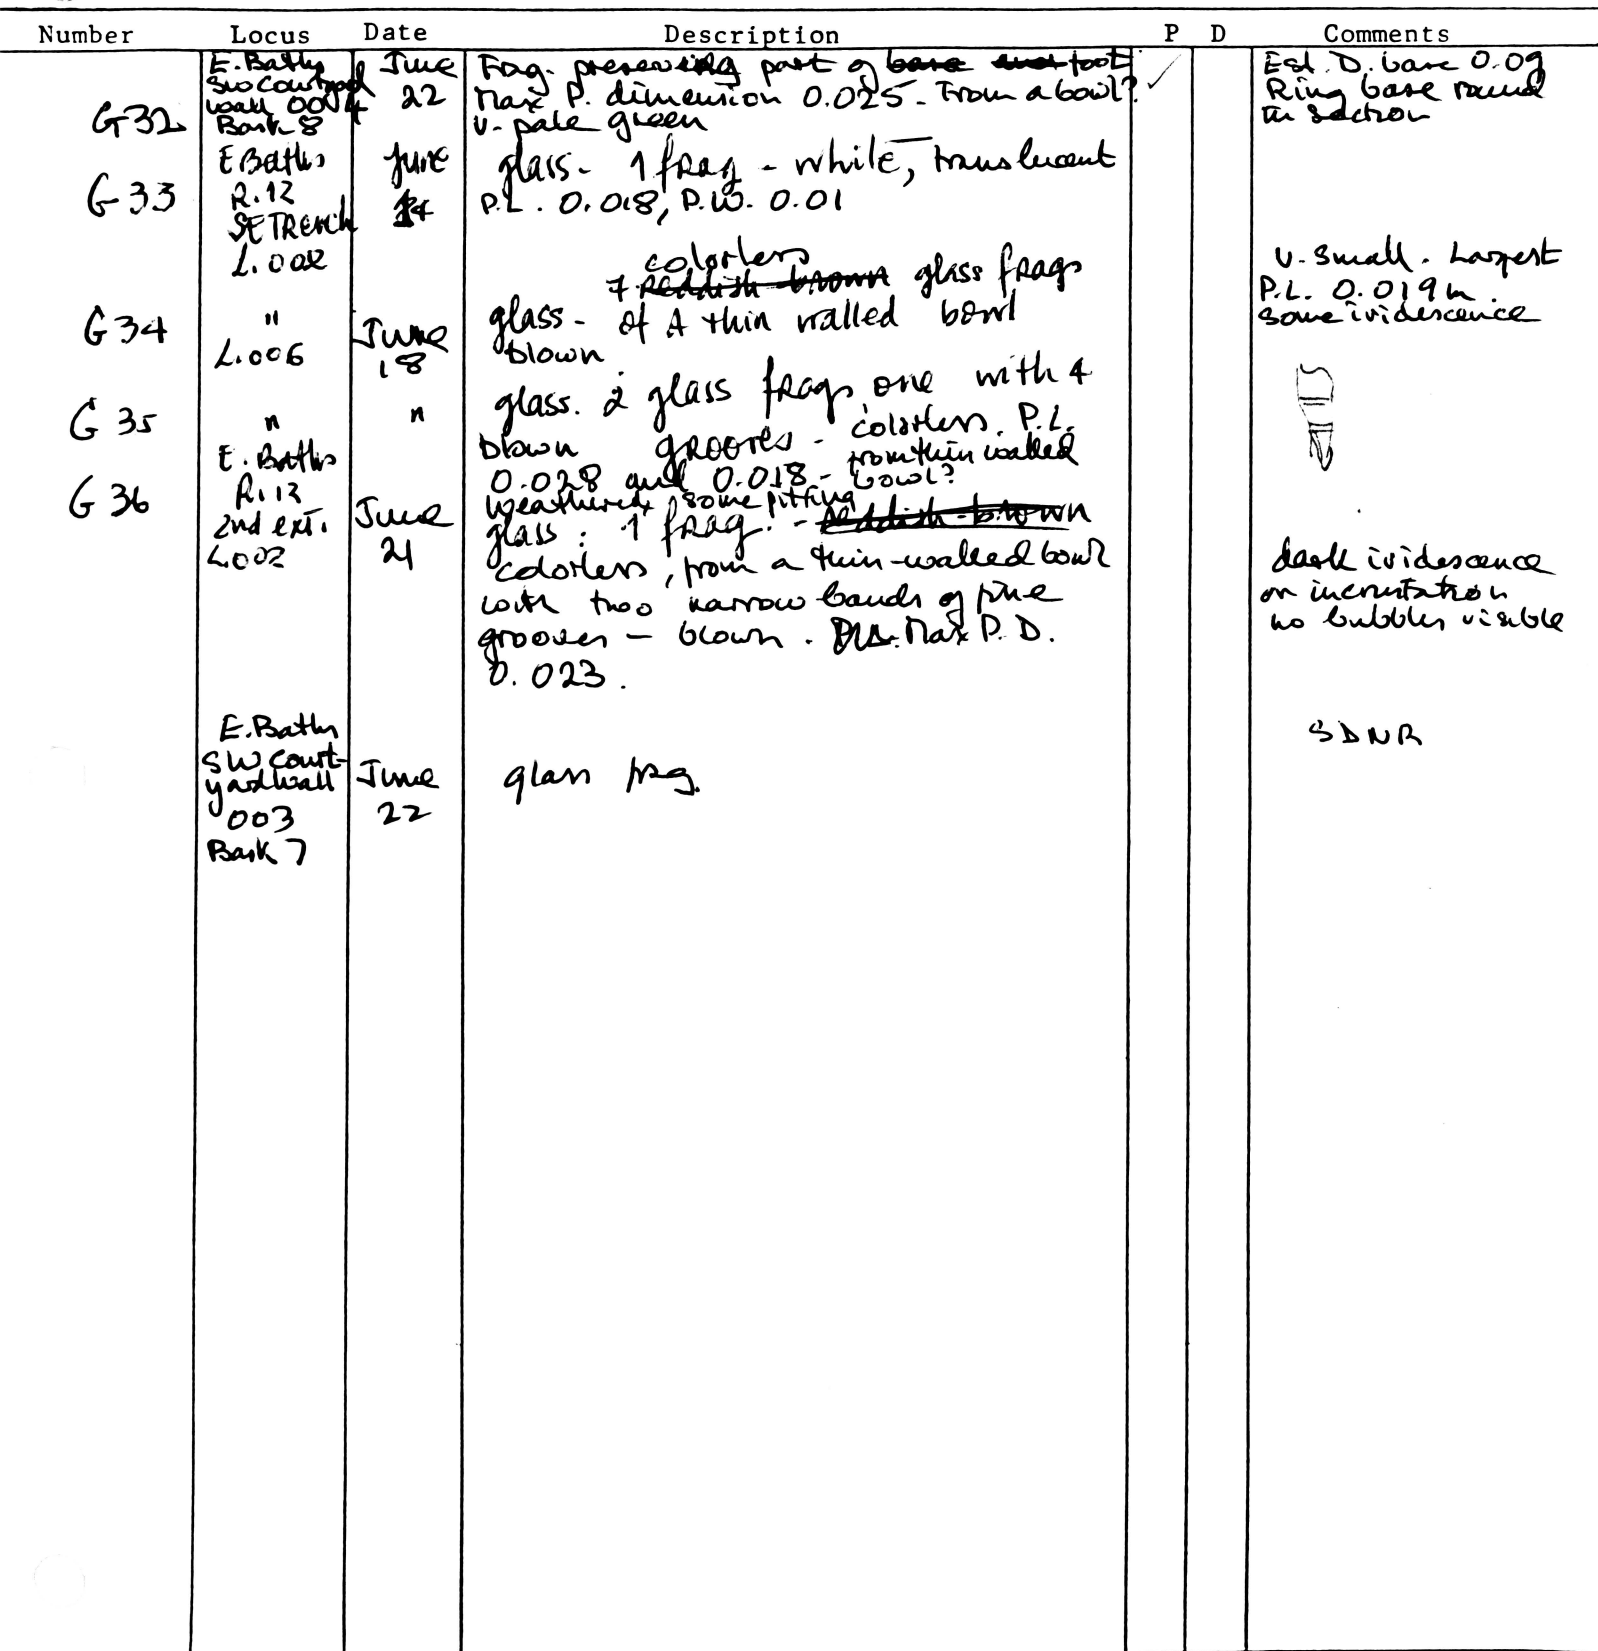 Number Locus Date Description P D Comments
G32
E. Baths
SW Courtyard
Wall 004
Bask 8
June
22
Frag. preserving part of base and foot
Max P. dimension 0.025 - From a bowl?
v. pale green
✓
Est. D. base 0.09
Ring base round
in section
G33
E Baths
R.12
SE TRench
L.002
June
14
glass - 1 frag - white, translucent
P.L. 0.018, P.W. 0.01
G34
"
L.006
June
18
colorless
7 reddish-brown glass frags
glass - of A thin walled bowl
blown
v. small. Largest
P.L. 0.019m.
some iridescence
G35
"
"
glass. 2 glass frags, one with 4
blown grooves - colorless. P.L.
0.028 and 0.018 - from thin walled
bowl?
weathered, some pitting
G36
E. Baths
R.12
2nd ext.
L.002
June
21
glass: 1 frag. - reddish-brown
colorless, from a thin-walled bowl
with two narrow bands of fine
grooves - blown. Max P.D.
0.023.
dark iridescence
on incrustation
no bubbles visible
E. Baths
SW Court-
yard Wall
003
Bask 7
June
22
glass frag.
SDNR